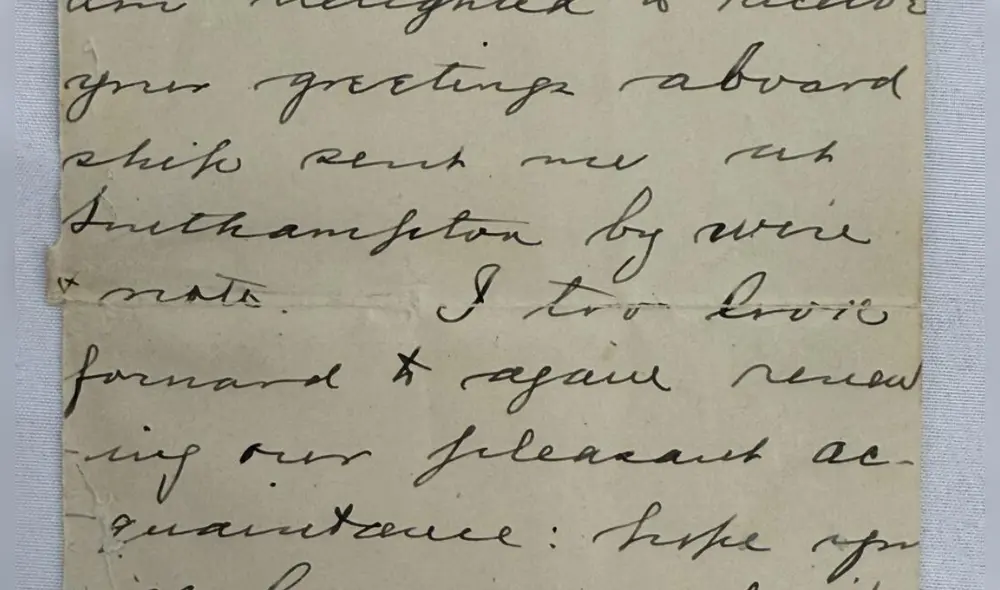 am delighted to receive
your greetings aboard
ship sent me at
Southampton by wire
& note. I too look
forward to again renew
-ing our pleasant ac-
-quaintance: hope you